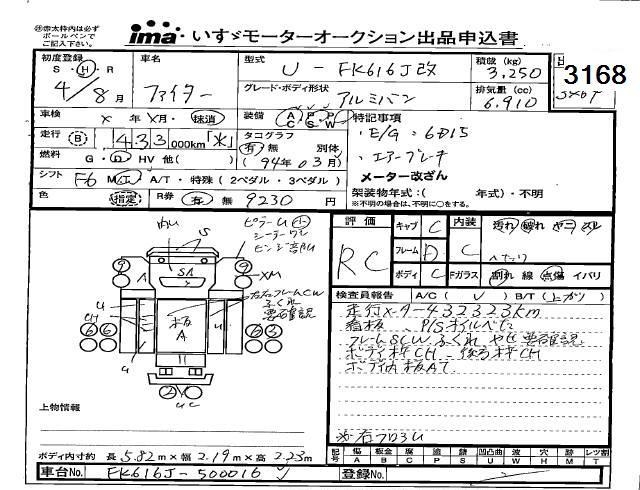 ※赤太枠内は必ず
ボールペンで
ご記入下さい。
ima いすゞモーターオークション出品申込書
3168
初度登録
S・H・R
4/8月
車名
ファイター
型式
U-FK616J改
積載 (kg)
3,250
グレード・ボディ形状
アルミバン
排気量 (cc)
6,910
車検 X年 X月・抹消
装備 A/C P/S P/W
特記事項
・E/G・6D15
・エアーブレーキ
メーター改ざん
走行 433,000km「メ」
タコグラフ
有 無 別体
(94年03月)
燃料 G・D HV 他( )
シフト F6 MT A/T・特殊(2ペダル・3ペダル)
架装物年式:( 年式)・不明
※不明の場合は、不明に○をする。
色 指定
R券 有 無 9230 円
評価
RC
キャブ C
フレーム D
ボディ C
内装
C
汚れ 破れ ヤニ スレ
ヘタリ
Fガラス 割れ 線 点傷 イバリ
ピラーU小
検査員報告 A/C( U )B/T(上がり)
走行メーター432323km
看板、P/Sオイルベた
フレームSCWふくれ ヤセ要確認
ボディ枠CH
ボディ内板AT
上物情報
ボディ内寸約 長5.82m×幅2.19m×高2.23m
記号 傷A 板金B 腐C 塗P 錆S 凹凸曲U 波W 穴H 跡M レンズ割T
車台No. FK616J-500016
登録No.